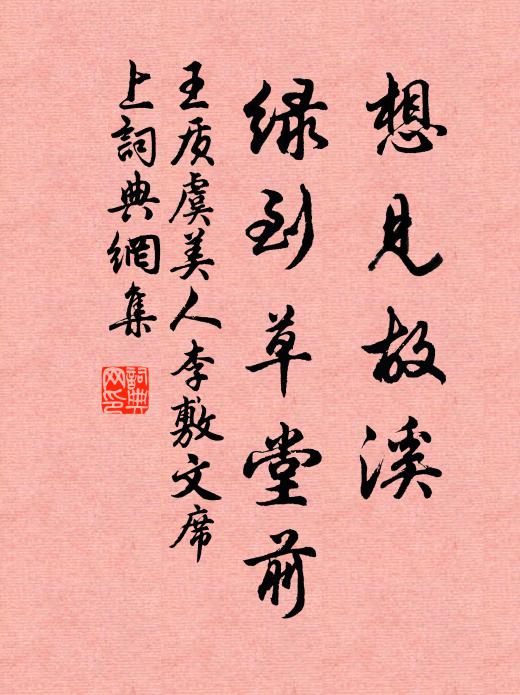 想見故溪
緑到草堂前
王质虞美人李敷文席
上詞典網集
詞典
网印